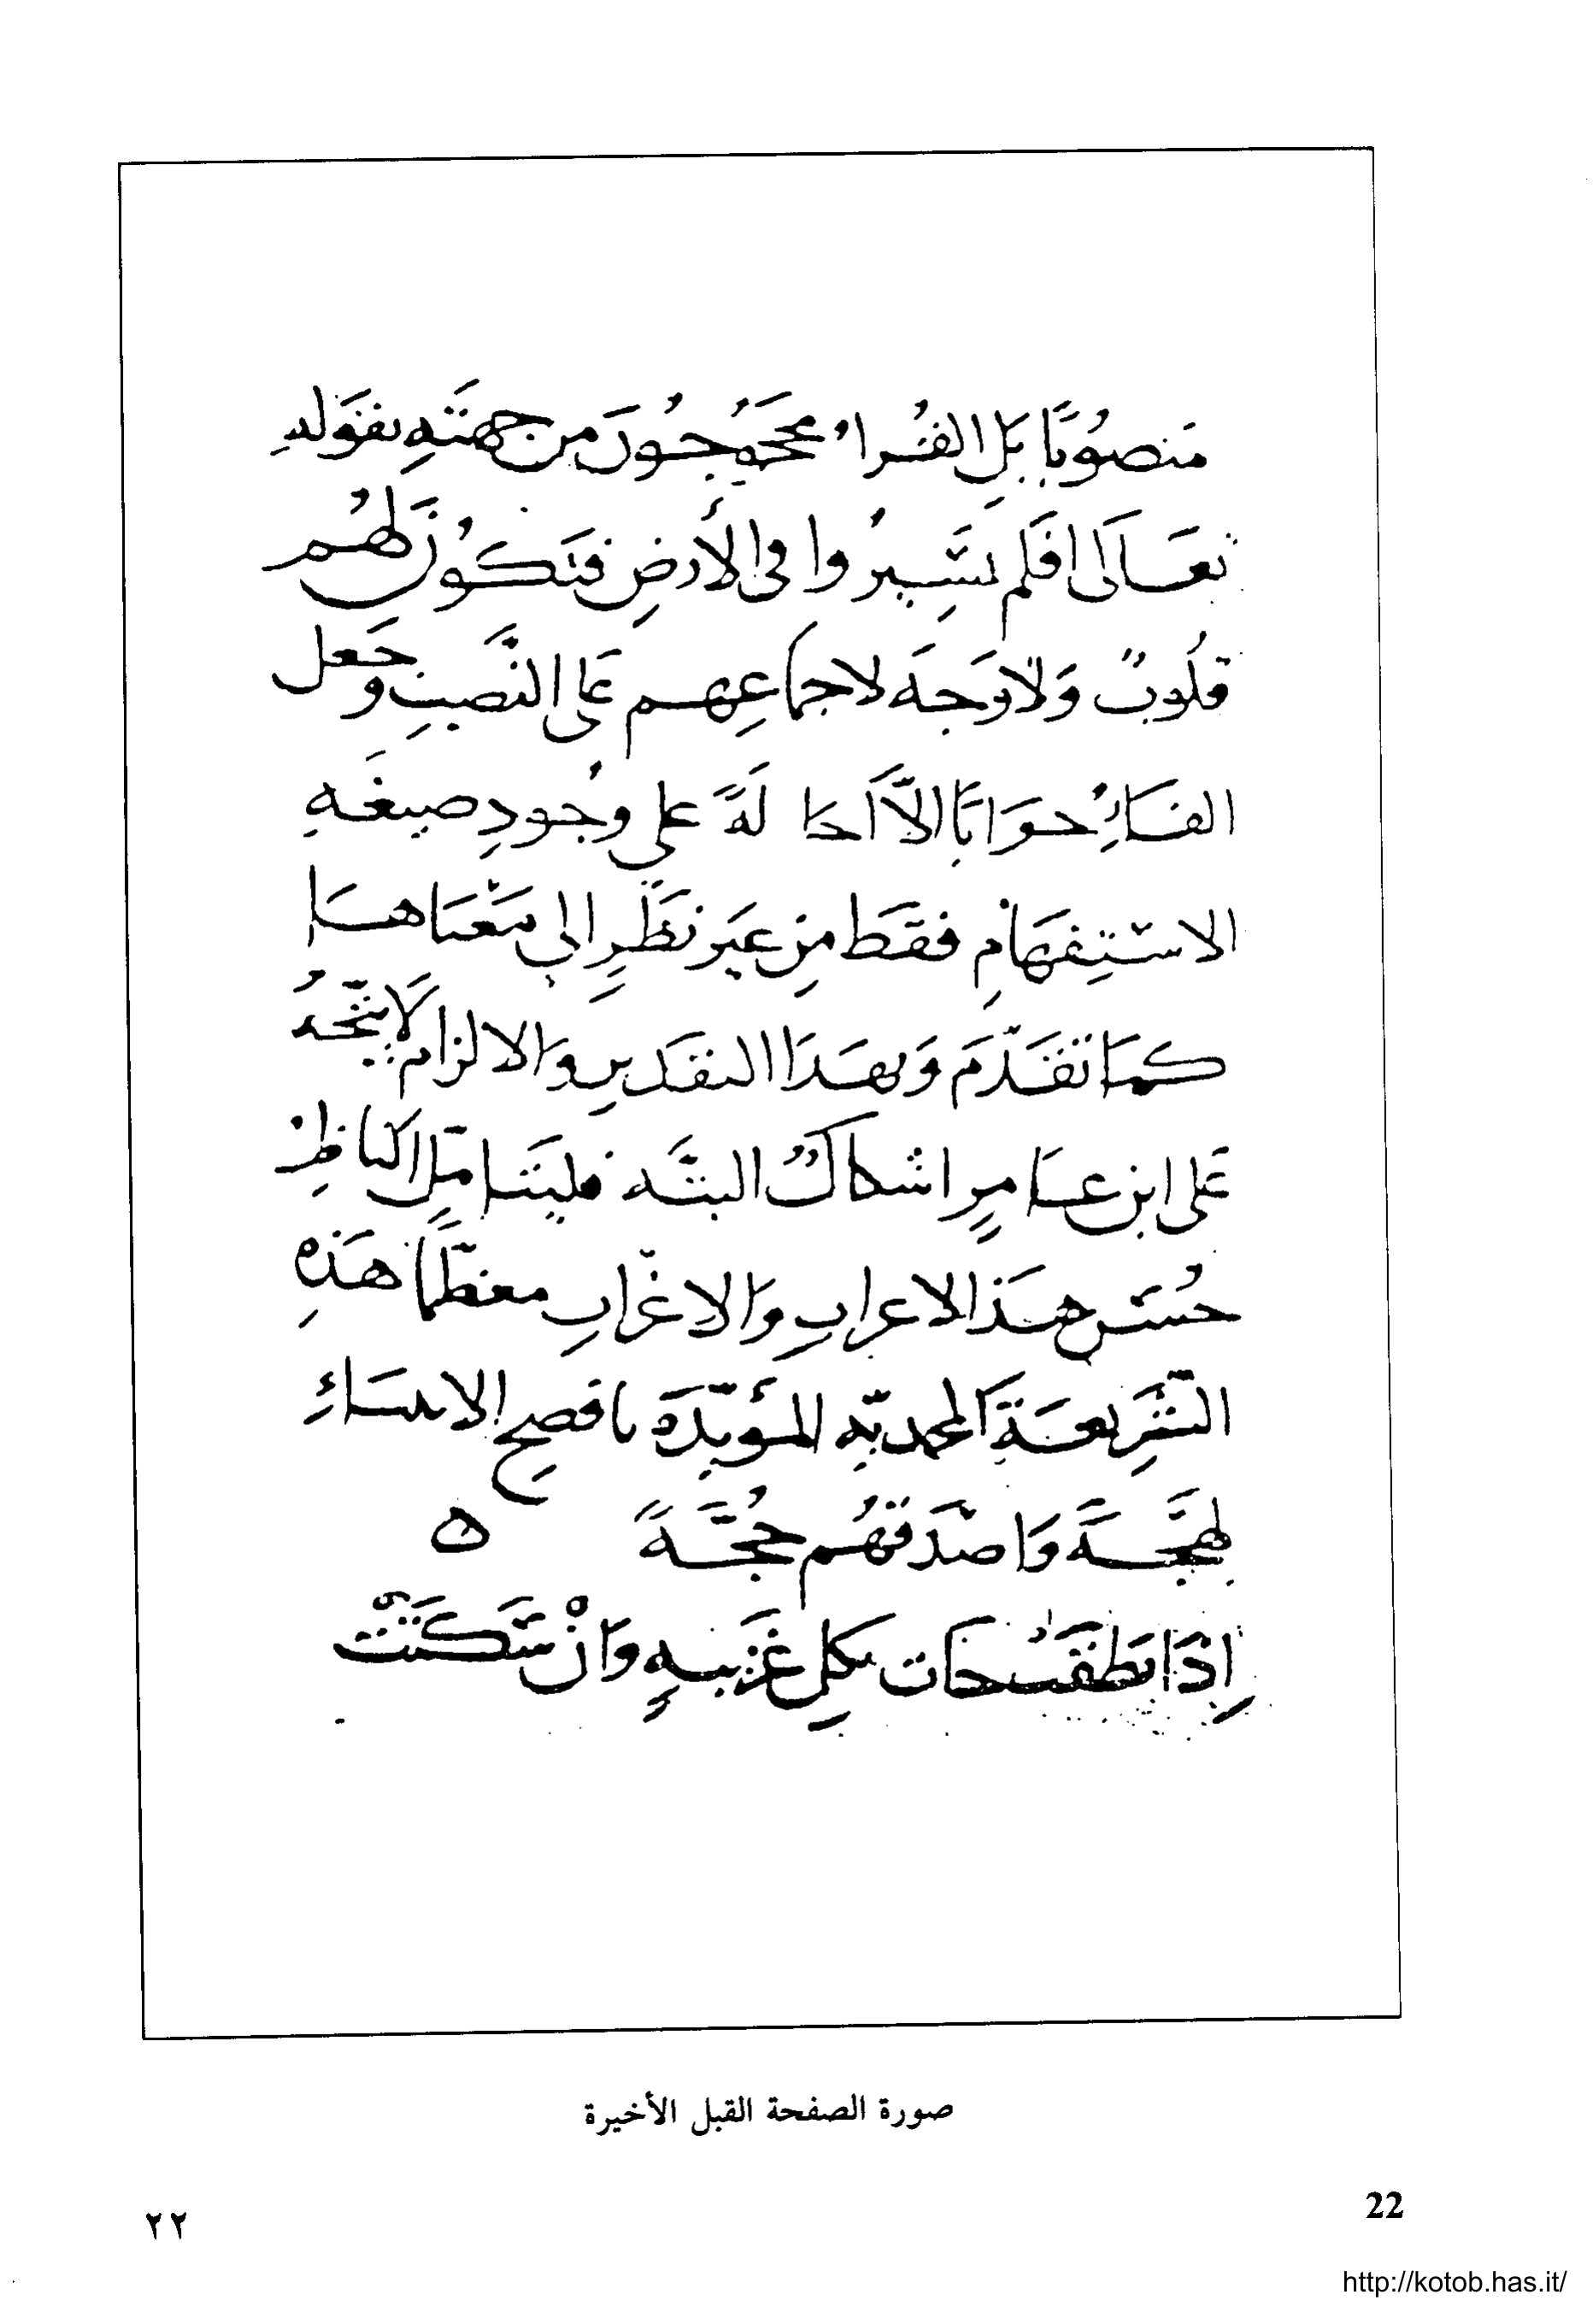 مَنصُوبًا بَلِ القُراء مَحجُوجُونَ من جهتَهِ بقَولهِ
تعَالَى افَلم يَسِيرُوا فى الأَرضِ فتَكونَ لهُم
قلُوبٌ وَلا وَجهَ لاجماعِهم عَلى النَّصبِ وجَعل
الفَاءِ جوَابًا الَّا احَالَةً على وجُودِ صيغَهِ
الاستِفهَامِ فقَط مِن غيَر نظَرٍ إلى مَعْنَاهَا
كمَا تقَدَّمَ وَبهَذا التقدَيرِ وَالالزام لَا يتَّجهُ
عَلى ابن عَامرٍ اشكالٌ البتَّه فليتَاملَ الناظِرُ
حُسنَ هَذا الاعرابِ وَالاغرَابِ معظّمًا هَذهِ
الشَّرِيعَةَ المحمديّه المؤَيَّدَة بافصحِ الانبيَاءِ
لهجَةً وَاصْدَقهُم حُجَّةً ه
إذَا نطَقَت جَات بكلِ غَريبهٍ وَانْ سَكتَتْ
صورة الصفحة القبل الأخيرة
22
٢٢
http://kotob.has.it/